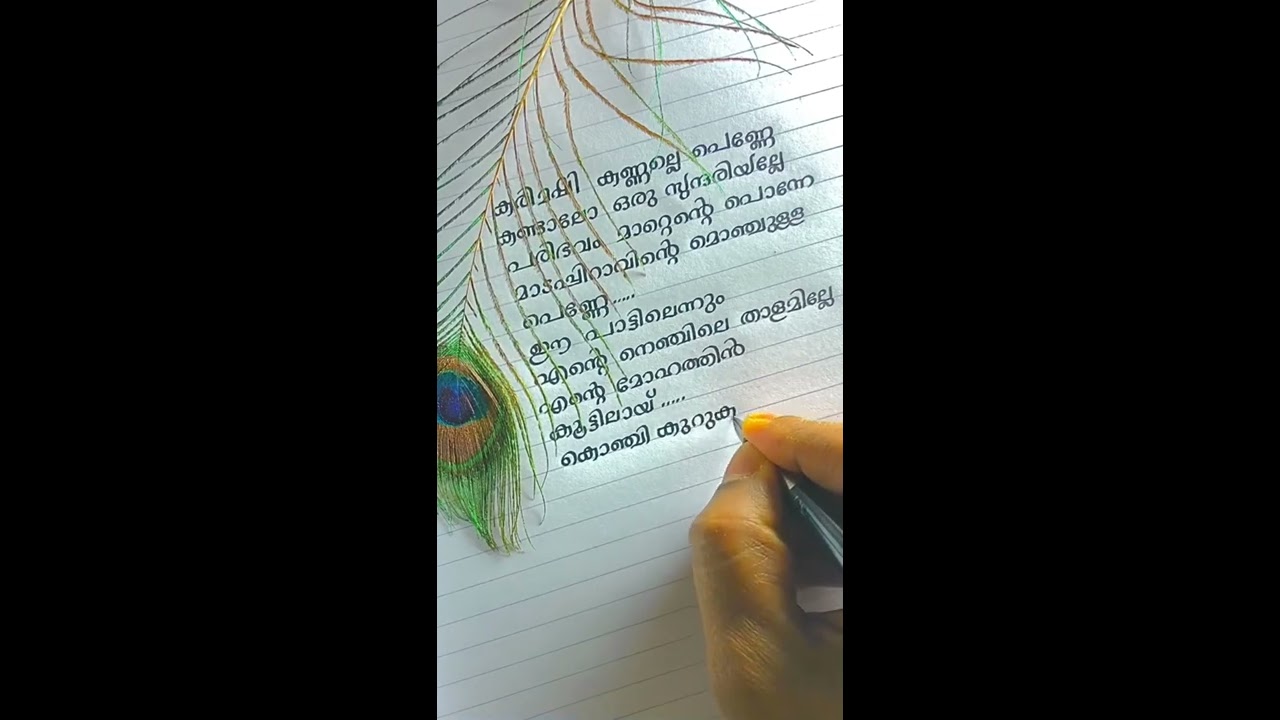 കരിമഷി കണ്ണല്ലെ പെണ്ണേ
കണ്ടാലോ ഒരു സുന്ദരിയല്ലേ
പരിഭവം മാറ്റെന്റെ പൊന്നേ
മാടപ്പിറാവിന്റെ മൊഞ്ചുള്ള
പെണ്ണേ.....
ഈ പാട്ടിലെന്നും
എന്റെ നെഞ്ചിലെ താളമില്ലേ
എന്റെ മോഹത്തിൻ
കൂട്ടിലായ് .....
കൊഞ്ചി കുറുക